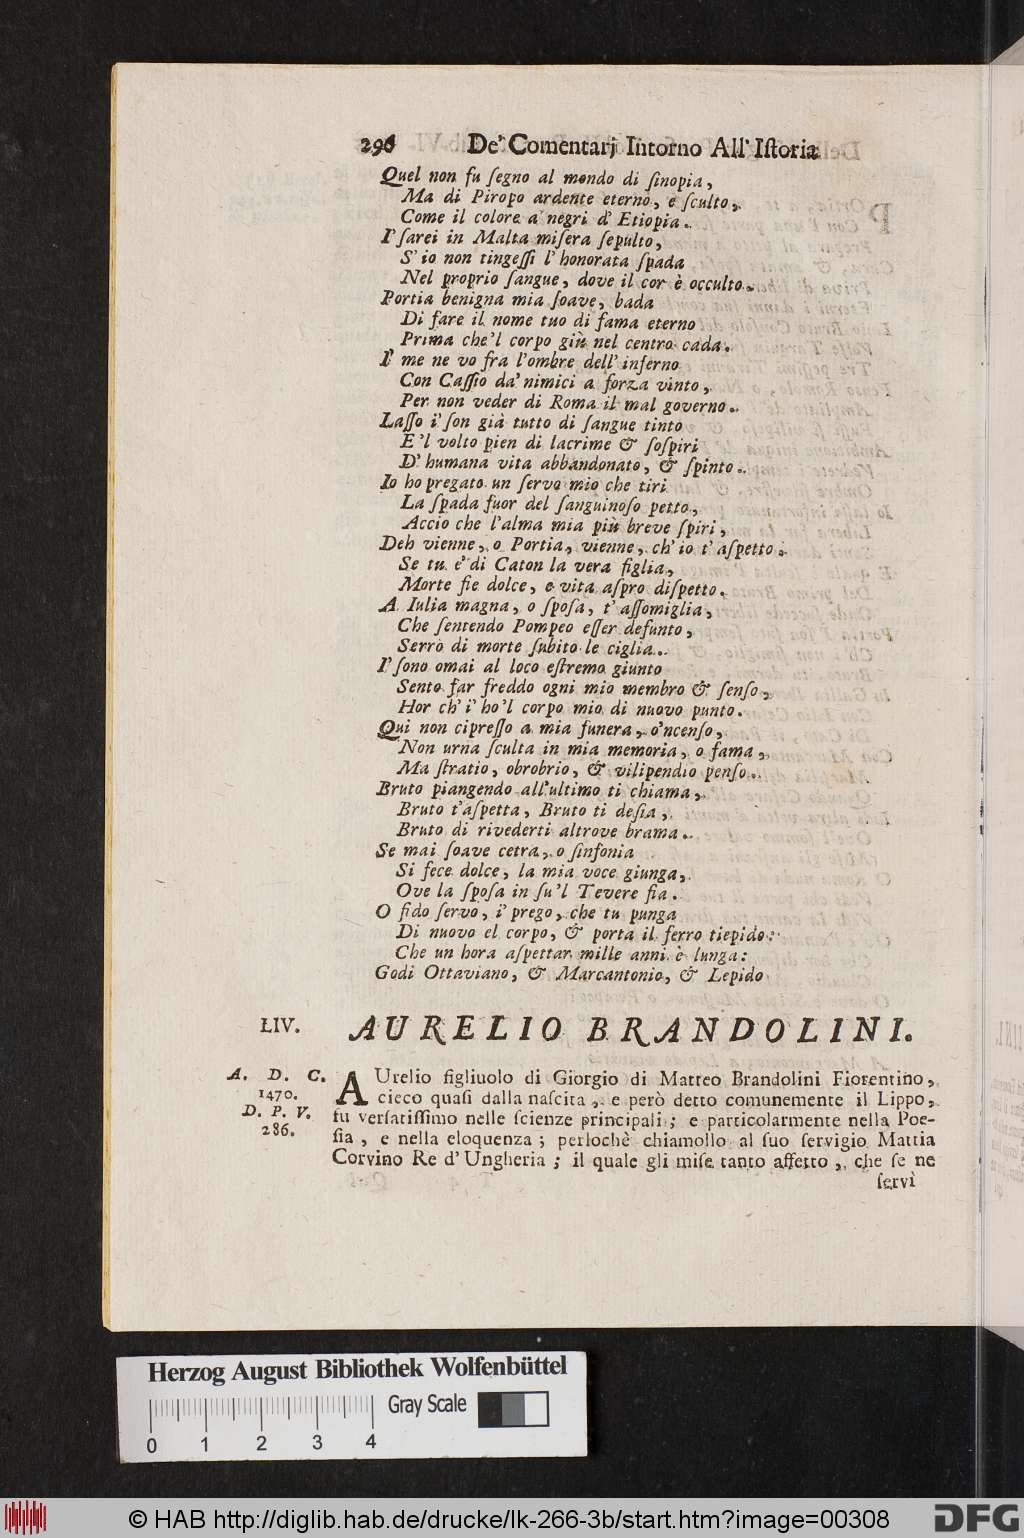 296 De' Comentarj Intorno All' Iſtoria
Quel non fu ſegno al mondo di ſinopia,
Ma di Piropo ardente eterno, e ſculto,
Come il colore a negri d' Etiopia.
I' ſarei in Malta miſera ſepulto,
S' io non tingeſſi l' honorata ſpada
Nel proprio ſangue, dove il cor è occulto.
Portia benigna mia ſoave, bada
Di fare il nome tuo di fama eterno
Prima che'l corpo giù nel centro cada.
I' me ne vo fra l'ombre dell' inferno
Con Caſſio da' nimici a forza vinto,
Per non veder di Roma il mal governo.
Laſſo i' ſon già tutto di ſangue tinto
E 'l volto pien di lacrime & ſoſpiri
D' humana vita abbandonato, & ſpinto.
Io ho pregato un ſervo mio che tiri
La ſpada fuor del ſanguinoſo petto,
Accio che l'alma mia più breve ſpiri,
Deh vienne, o Portia, vienne, ch' io t' aſpetto.
Se tu e' di Caton la vera figlia,
Morte fie dolce, e vita aſpro diſpetto.
A Iulia magna, o ſpoſa, t' aſſomiglia,
Che ſentendo Pompeo eſſer defunto,
Serrò di morte ſubito le ciglia.
I' ſono omai al loco eſtremo giunto
Sento far freddo ogni mio membro & ſenſo,
Hor ch' i' ho'l corpo mio di nuovo punto.
Qui non cipreſſo a mia funera, o'ncenſo,
Non urna ſculta in mia memoria, o fama,
Ma ſtratio, obrobrio, & vilipendio penſo.
Bruto piangendo all'ultimo ti chiama,
Bruto t'aſpetta, Bruto ti deſia,
Bruto di rivederti altrove brama.
Se mai ſoave cetra, o ſinfonia
Si fece dolce, la mia voce giunga,
Ove la ſpoſa in ſu'l Tevere fia.
O fido ſervo, i' prego, che tu punga
Di nuovo el corpo, & porta il ferro tiepido:
Che un hora aſpettar mille anni è lunga:
Godi Ottaviano, & Marcantonio, & Lepido
LIV. AURELIO BRANDOLINI.
A. D. C.
1470.
D. P. V.
286.
AUrelio figliuolo di Giorgio di Matteo Brandolini Fiorentino,
cieco quaſi dalla naſcita, e però detto comunemente il Lippo,
fu verſatiſſimo nelle ſcienze principali; e particolarmente nella Poe-
ſia, e nella eloquenza; perlochè chiamollo al ſuo ſervigio Mattia
Corvino Re d' Ungheria; il quale gli miſe tanto affetto, che ſe ne
ſervì
Herzog August Bibliothek Wolfenbüttel
Gray Scale
0 1 2 3 4
© HAB http://diglib.hab.de/drucke/lk-266-3b/start.htm?image=00308
DFG